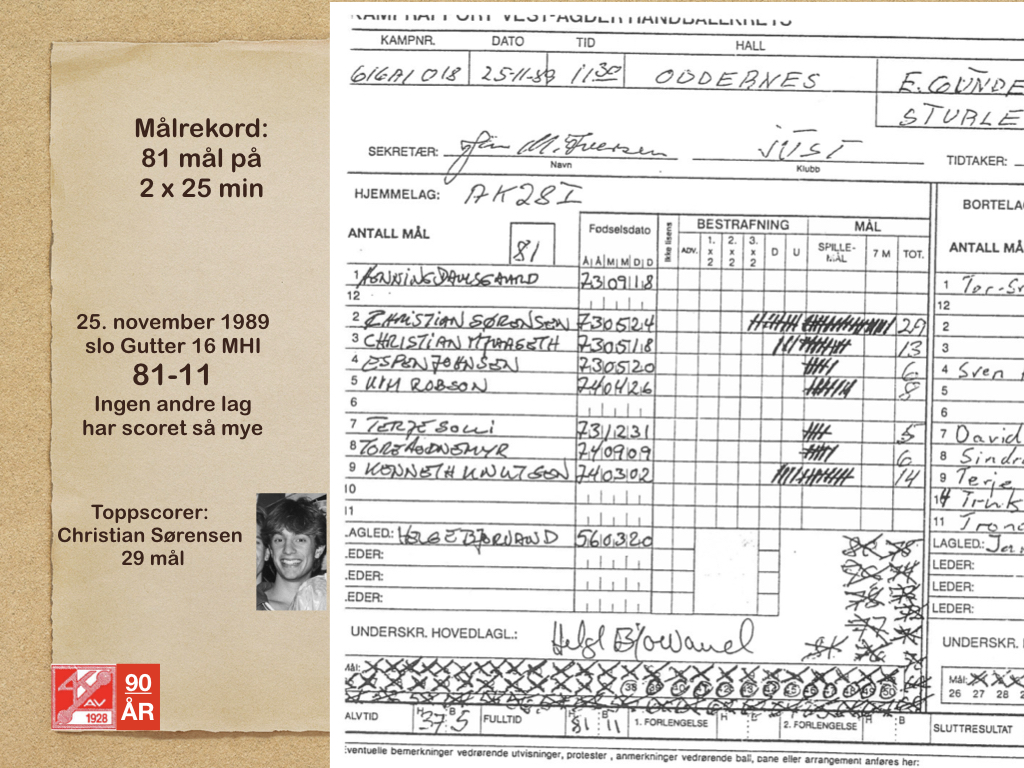 Målrekord:
81 mål på
2 x 25 min
25. november 1989
slo Gutter 16 MHI
81-11
Ingen andre lag
har scoret så mye
Toppscorer:
Christian Sørensen
29 mål
AV
1928
90
ÅR
KAMPRAPPORT VEST-AGDER HÅNDBALLKRETS
KAMPNR. DATO TID HALL
616A1 018 25-11-89 11 30 ODDERNES E. GUNDE
STURLE
SEKRETÆR: M. Iversen JUST TIDTAKER:
Navn Klubb
HJEMMELAG: AK28 I BORTELAG
ANTALL MÅL 81 Fødselsdato Ikke lisens BESTRAFNING MÅL ANTALL MÅ
Å Å M M D D ADV. 1. x 2 2. x 2 3. x 2 D U SPILLE-MÅL 7 M TOT.
1 HENNING DAULSGAARD 730918 1 Tor-Sv
12 12
2 CHRISTIAN SØRENSEN 730524 29 2
3 CHRISTIAN 730518 13 3
4 ESPEN JOHNSEN 730520 6 4 Sven
5 KIM ROBSON 740426 8 5
6 6
7 TERJE SOLLI 731231 5 7 David
8 TORE AGDNEMYR 740909 6 8 Sindr
9 KENNETH KNUTSEN 740302 14 9 Terje
10 14 Truls
11 11 Trond
LAGLED.: HELGE BJORVAND 560320 LAGLED.: Jar
LEDER: LEDER:
LEDER: LEDER:
LEDER: LEDER:
UNDERSKR. HOVEDLAGL.: Helge Bjorvand UNDERSKR. H
Mål: Mål:
26 27 28 2
ALVTID H 37 B 5 FULLTID H 81 B 11 1. FORLENGELSE H B 2. FORLENGELSE H B SLUTTRESULTAT
Eventuelle bemerkninger vedrørende utvisninger, protester , anmerkninger vedrørende ball, bane eller arrangement anføres her: